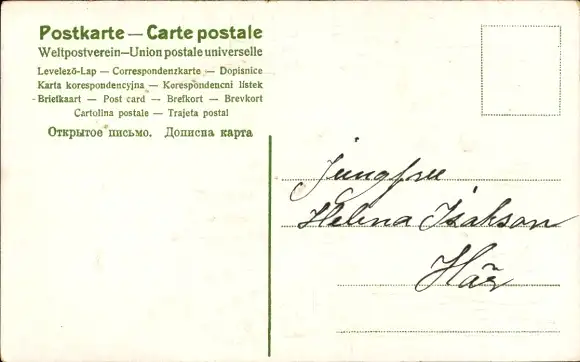 Postkarte — Carte postale
Weltpostverein—Union postale universelle
Levelező-Lap — Correspondenzkarte — Dopisnice
Karta korespondencyjna — Korespondencni listek
Briefkaart — Post card — Brefkort — Brevkort
Cartolina postale — Trajeta postal
Открытое письмо. Дописна карта
Jungfru
Helena Isakson
Här